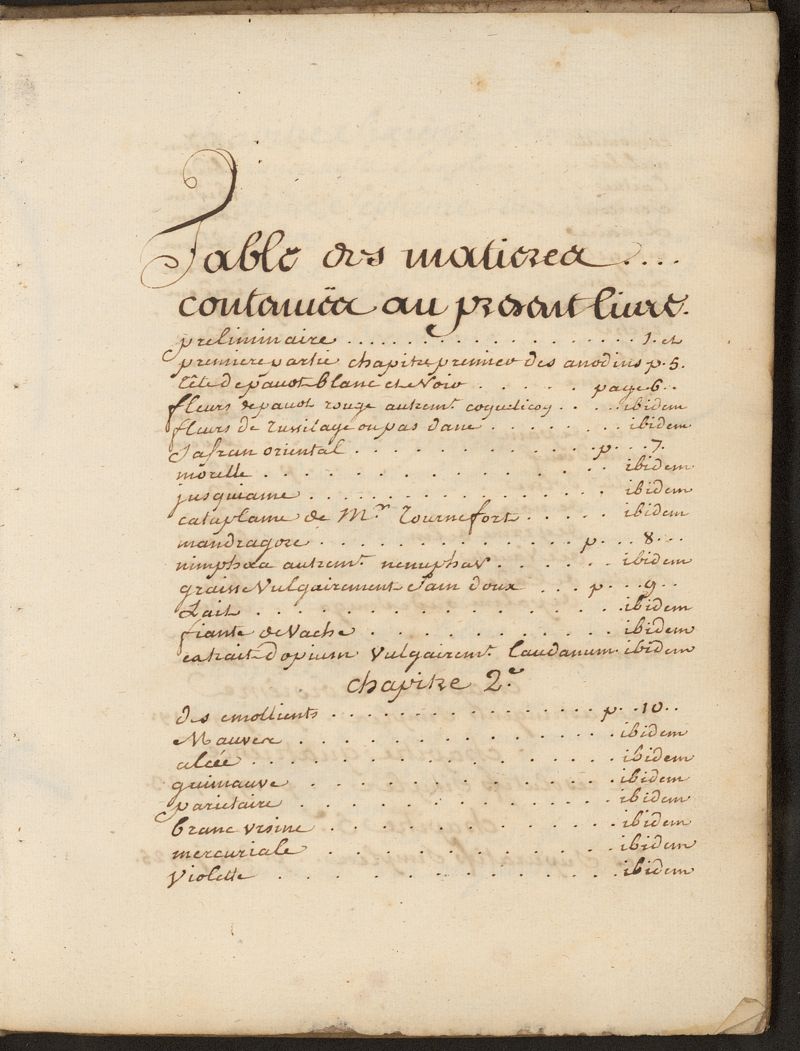 Table des matieres....
contenües au present livre.
preliminaire . . . . . . . . . . . . . . . . . . 1. et
premiere partie chapitre premier des anodins p. 5.
tête de pavot blanc et Noir . . . . . page 6..
fleurs de pavot rouge autremt. coquelicoq . . . . ibidem
fleurs de tussilage ou pas dane . . . . . . ibidem
Safran oriental . . . . . . . . . . . p. . . 7.
morelle . . . . . . . . . . . . . . ibidem
jusquiame . . . . . . . . . . . . . ibidem
cataplame de Mr. Tournefort . . . . . ibidem
mandragore . . . . . . . . . . . . p. . . 8. . .
nimphea autremt. nenuphar . . . . . . ibidem
graisse Vulgairement Sain doux . . . p. . . 9. .
Lait . . . . . . . . . . . . . . . ibidem
fiante de Vache . . . . . . . . . . ibidem
extrait d'opium Vulgairemt. laudanum. ibidem
chapitre 2.e
des emollients . . . . . . . . . . . . . p. . 10. .
Mauvere . . . . . . . . . . . . . ibidem
alcée . . . . . . . . . . . . . . . ibidem
guimauve . . . . . . . . . . . . ibidem
parietaire . . . . . . . . . . . . ibidem
branc Vrsine . . . . . . . . . . . ibidem
mercuriale . . . . . . . . . . . . ibidem
Violette . . . . . . . . . . . . . . ibidem